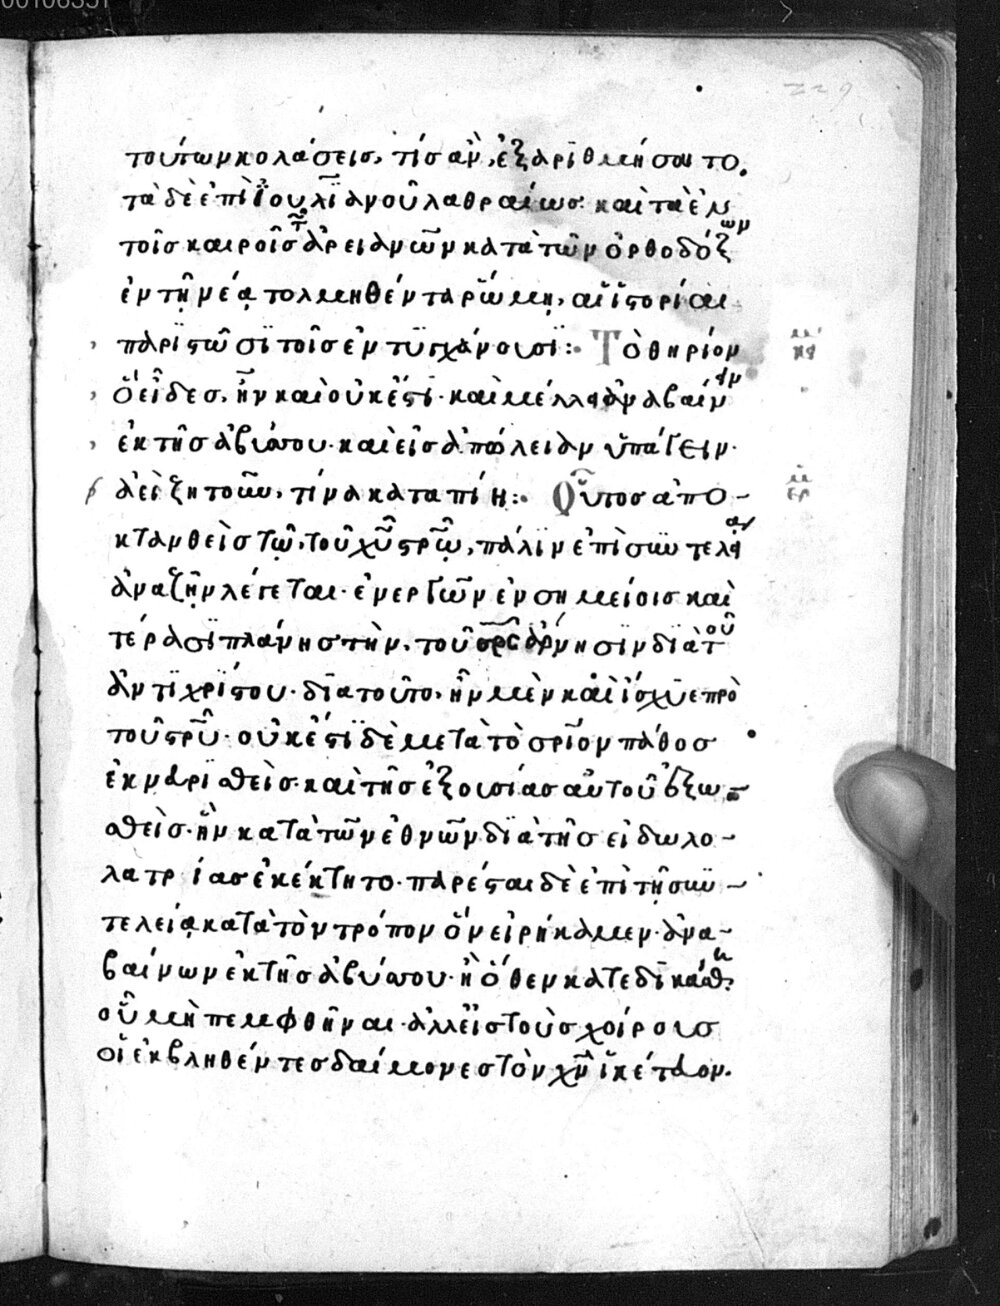 00106351
229
τούτων κολάσεις, τίς ἂν, ἐξαρϊθμήσαι το.
τὰ δὲ ἐπὶ Ϊουλϊανοῦ λαθραίως· καὶ τὰ ἐν
τοῖς καιροῖς τῶν ἀρειανῶν κατὰ τῶν ὀρθοδόξων
ἐν τῇ νέᾳ τολμηθέντα ῥώμῃ, αἱ ἵστορίαι
παρϊστῶσϊ τοῖς ἐντϋγχάνουσϊ:· Τὸ θηρίον
ὃ εἶδες, ἦν καὶ οὐκ ἔστϊ· καὶ μέλλει ἀναβαίνειν
ἐκ τῆς ἀβύσσου· καὶ εἰς ἀπώλειαν ὑπάγειν·
ἀεὶ ζητοῦν, τίνα καταπίῃ:· Οὗτος ἀπο-
κτανθεὶς τῷ, τοῦ χῦ στρῷ, πάλϊν ἐπὶ συντελείας
ἀναζῆν λέγεται· ἐνεργῶν ἐν σημείοις καὶ
τέρασϊ πλάνης τὴν, τοῦ στρσ ἄρνησϊν διὰ τοῦ
ἀντϊχρίστου· διατοῦτο, ἦν μὲν καὶ ἴσχυε πρὸ
τοῦ στρῦ· οὐκ ἔστϊ δὲ μετὰ τὸ σρϊον πάθος
ἐκναρϊσθεὶς· καὶ τῆς ἐξουσίας αὐτοῦ ἐξω-
σθεὶς· ἣν κατὰ τῶν ἐθνῶν διὰ τῆς εἰδωλο-
λατρίας ἐκέκτητο· παρέσται δὲ ἐπὶ τῇ συν-
τελείᾳ κατὰ τὸν τρόπον ὃν εἰρήκαμεν· ἀνα-
βαίνων ἐκ τῆς ἀβύσσου· ἢ ὅθεν κατεδϊκάσθη·
οὗ μὴ πεμφθῆναι· ἀλλ' εἰς τοὺς χοίρους
οἱ ἐκβληθέντες δαίμονες τὸν χν ἵκέτευον.